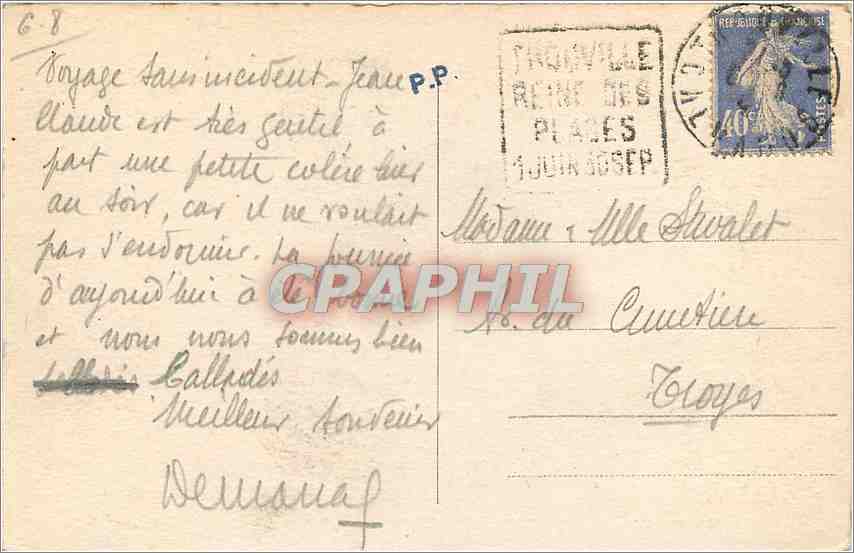 6-8
Voyage sans incident - Jean
Claude est très gentil à
part une petite colère hier
au soir, car il ne voulait
pas s'endormir. La journée
d'aujourd'hui à été bonne
et nous nous sommes bien
balladés
Meilleur souvenir
P.P.
TROUVILLE
REINE DES
PLAGES
1 JUIN 30 SEP
REPUBLIQUE FRANÇAISE
40c
POSTES
Madame & Mlle
du Cimetière
Troyes
CPARHIL